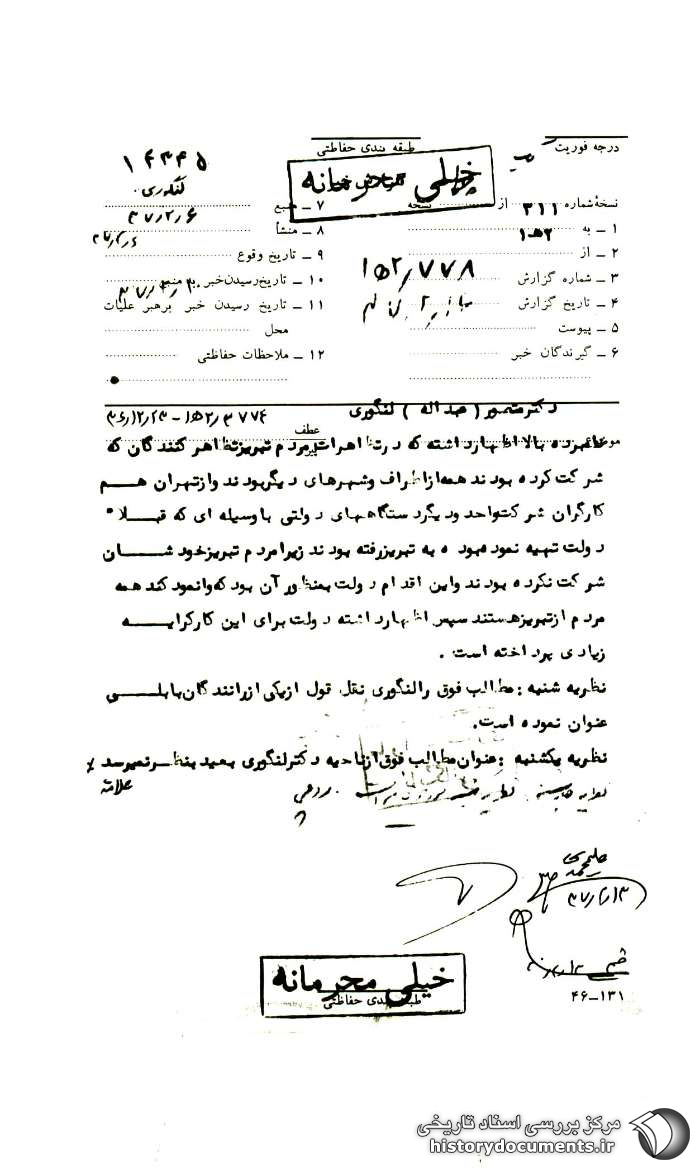 درجه فوریت
طبقه بندی حفاظتی
خیلی محرمانه
۱۴۳۴۵
نسخهٔ شماره ۳۱۱ از نسخه
۱ – به ۱ه۲
۲ – از
۳ – شماره گزارش ۱ه۲/۷۷۸
۴ – تاریخ گزارش
۵ – پیوست
۶ – گیرندگان خبر
۷ – منبع لنگوری
۸ – منشأ ۳۷/۲/۶
۹ – تاریخ وقوع
۱۰ – تاریخ رسیدن خبر به منبع
۱۱ – تاریخ رسیدن خبر برهبر عملیات
محل
۱۲ – ملاحظات حفاظتی
دکتر منصور ( صداله ) لنگوری
عطف ۱ه۲/۳۷۷۴ – ۳۶/۱۲/۲۳
نامبرده بالا اظهار داشته که در تظاهرات مردم تبریز تظاهر کنندگان که
شرکت کرده بودند همه از اطراف و شهرهای دیگر بودند و از تهران هم
کارگران شرکت واحد و دیگر دستگاههای دولتی با وسیله ای که قبلا"
دولت تهیه نموده بوده به تبریز رفته بودند زیرا مردم تبریز خودشان
شرکت نکرده بودند و این اقدام دولت بمنظور آن بود که وانمود کند همه
مردم از تبریز هستند سپس اظهار داشته دولت برای این کار کرایه
زیادی پرداخته است .
نظریه شنبه : مطالب فوق را لنگوری نقل قول از یکی از رانندگان بابلی
عنوان نموده است.
نظریه یکشنبه : عنوان مطالب فوق از ناحیه دکتر لنگوری بعید بنظر نمیرسد
علامه
خیلی محرمانه
طبقه بندی حفاظتی
۴۶–۱۳۱
مرکز بررسی اسناد تاریخی
historydocuments.ir